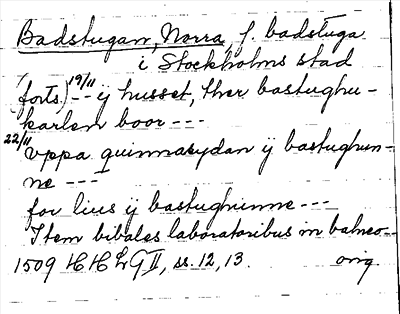 Badstugan, Norra, f. badstuga
i Stockholms stad
(forts.) 19/11 -- ij husset, ther bastughu-
karlen boor ---
22/11 vppa quinnasydan ij bastughun-
ne ---
for lius ij bastughunne ---
Item bibales laboratoribus in balneo--
1509 HHLGII, ss. 12, 13. orig.